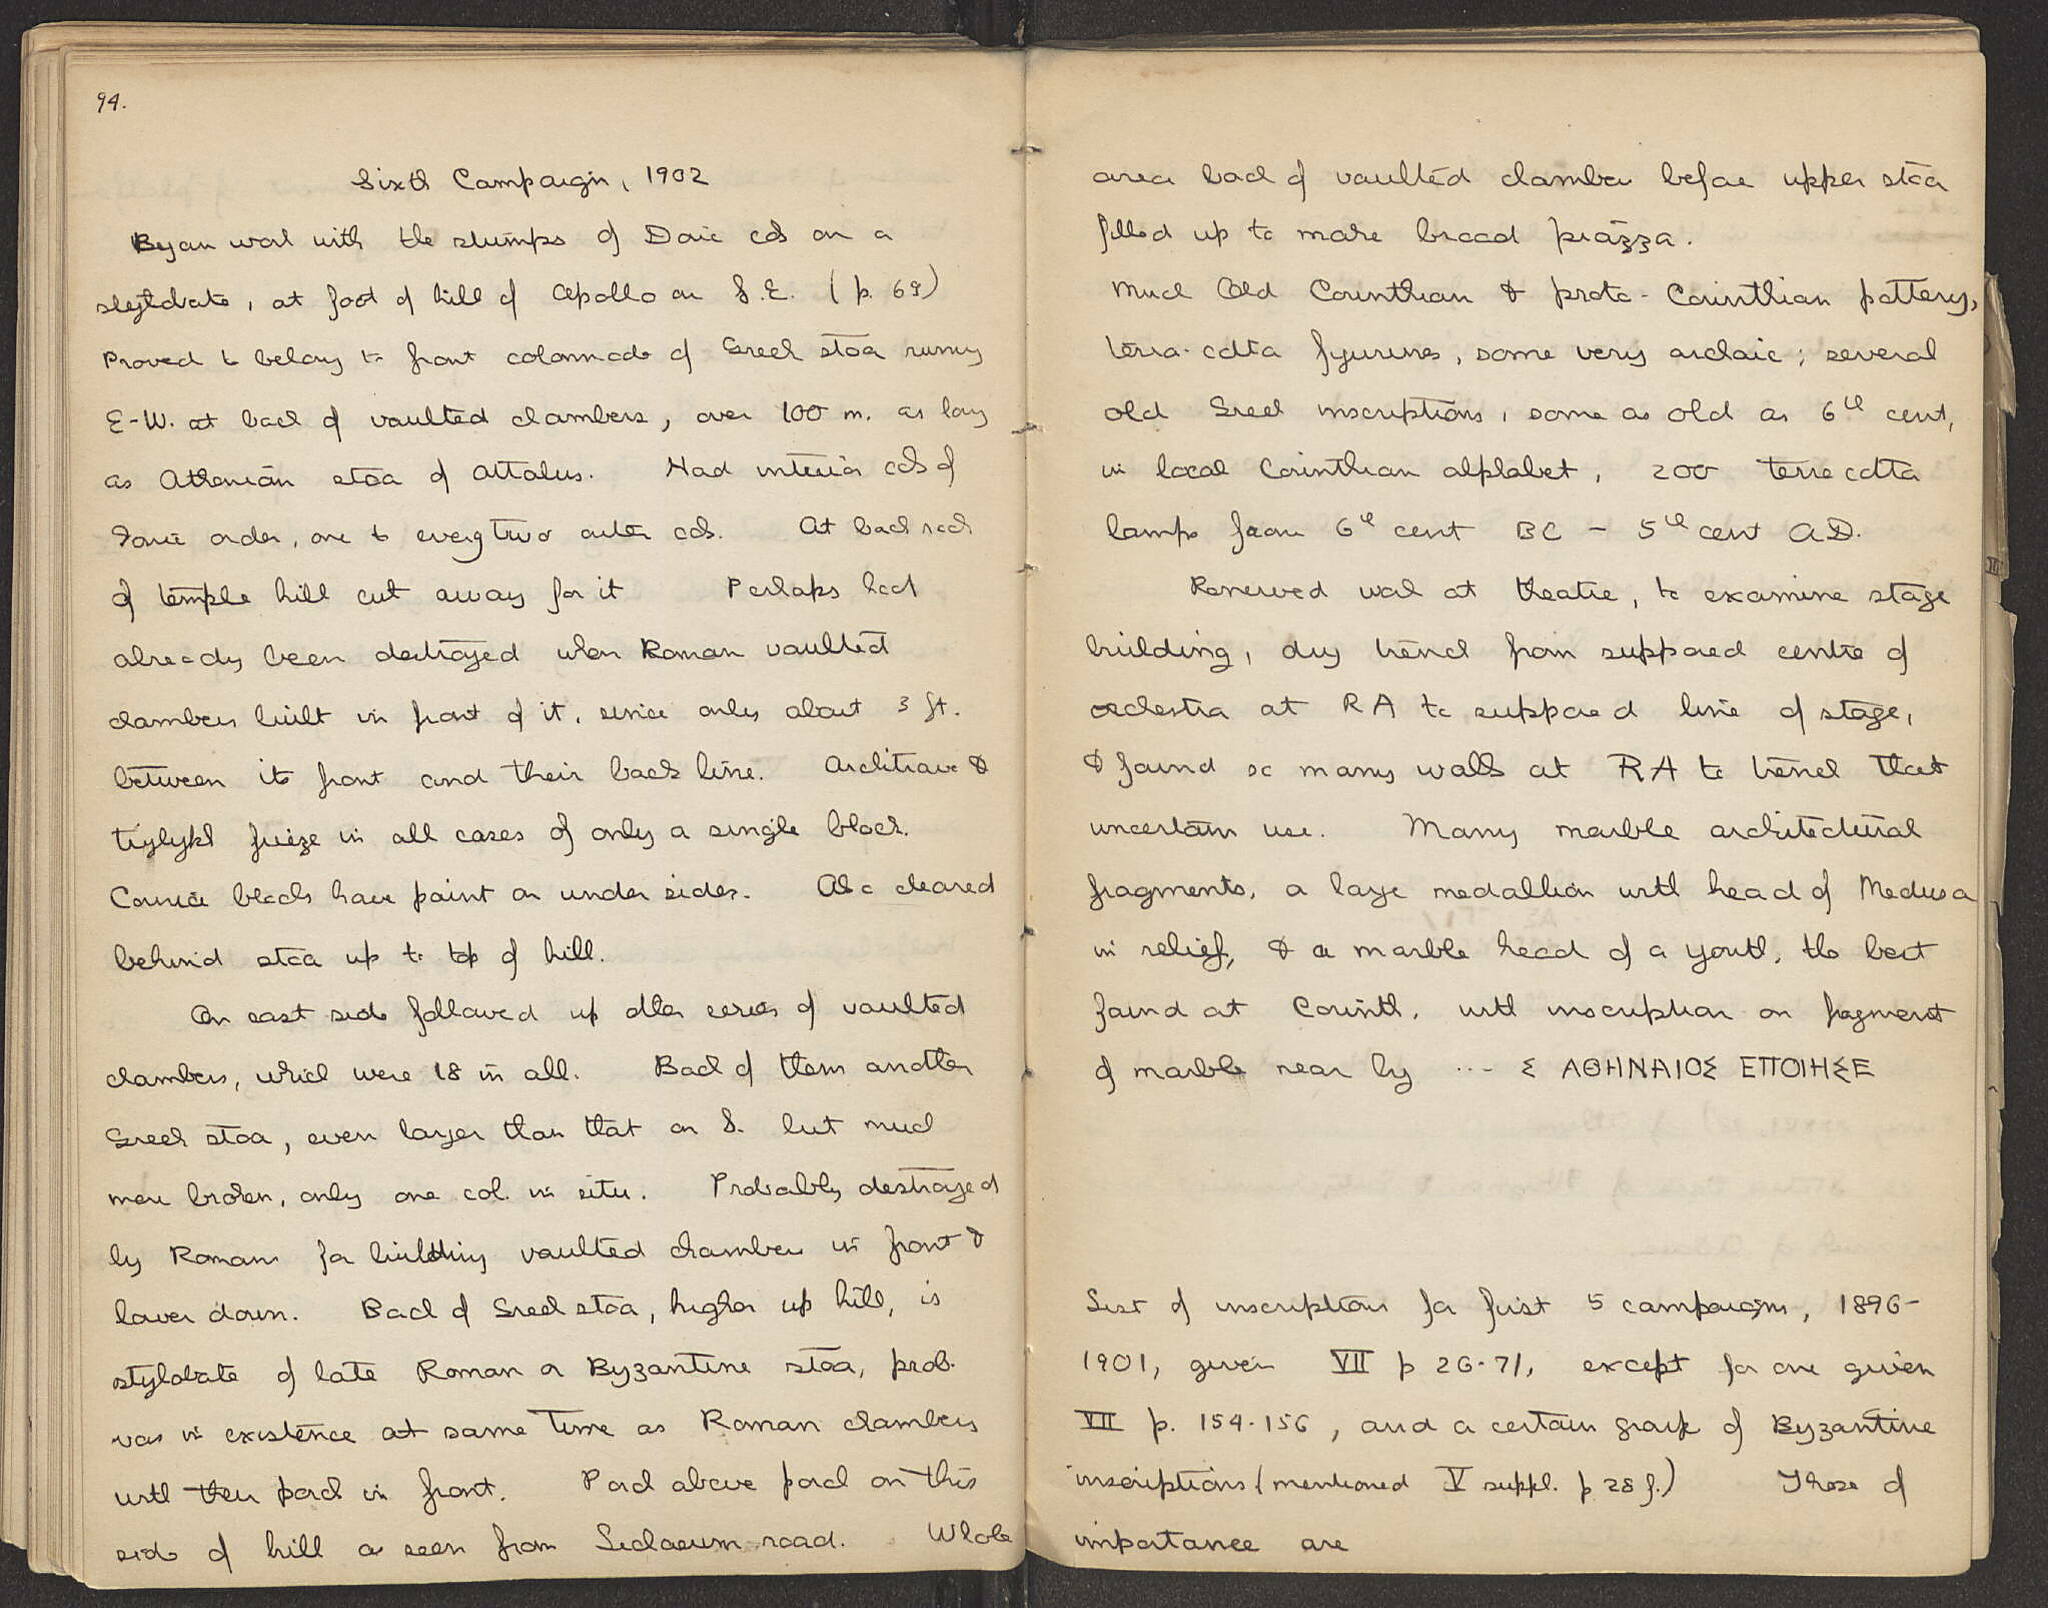 94.
Sixth Campaign, 1902
Began work with the stumps of Doric cols on a
stylobate, at foot of hill of Apollo on S.E. (p. 69)
Proved to belong to front colonnade of Greek stoa runing
E-W. at back of vaulted chambers, over 100 m. as long
as Athenian stoa of Attalus. Had interior cols of
Ionic order, one to every two outer cols. At back rock
of temple hill cut away for it Perhaps had
already been destroyed when Roman vaulted
chambers built in front of it, since only about 3 ft.
between its front and their back line. Architrave &
triglyph frieze in all cases of only a single block.
Cornice blocks have paint on under sides. Also cleared
behind stoa up to top of hill.
On east side followed up other series of vaulted
chambers, which were 18 in all. Back of them another
Greek stoa, even larger than that on S. but much
more broken, only one col. in situ. Probably destroyed
by Romans for building vaulted chambers in front &
lower down. Back of Greek stoa, higher up hill, is
stylobate of late Roman or Byzantine stoa, prob.
was in existence at same time as Roman chambers
with their porch in front. Porch above porch on this
side of hill as seen from Lechaeum road. Whole
area back of vaulted chambers before upper stoa
filled up to make broad piazza.
Much Old Corinthian & proto-Corinthian pottery,
terra-cotta figurines, some very archaic; several
old Greek inscriptions, some as old as 6th cent,
in local Corinthian alphabet, 200 terra cotta
lamps from 6th cent BC - 5th cent A.D.
Renewed work at theatre, to examine stage
building, dug trench from supposed centre of
orchestra at RA to supposed line of stage,
& found so many walls at RA to trench that
uncertain use. Many marble architectural
fragments, a large medallion with head of Medusa
in relief, & a marble head of a youth, the best
found at Corinth, with inscription on fragment
of marble near by ... Σ ΑΘΗΝΑΙΟΣ ΕΠΟΙΗΣΕ
List of inscriptions for first 5 campaigns, 1896-
1901, given VII p 26-71, except for one given
VII p. 154-156, and a certain group of Byzantine
inscriptions (mentioned V suppl. p 28 f.) Those of
importance are